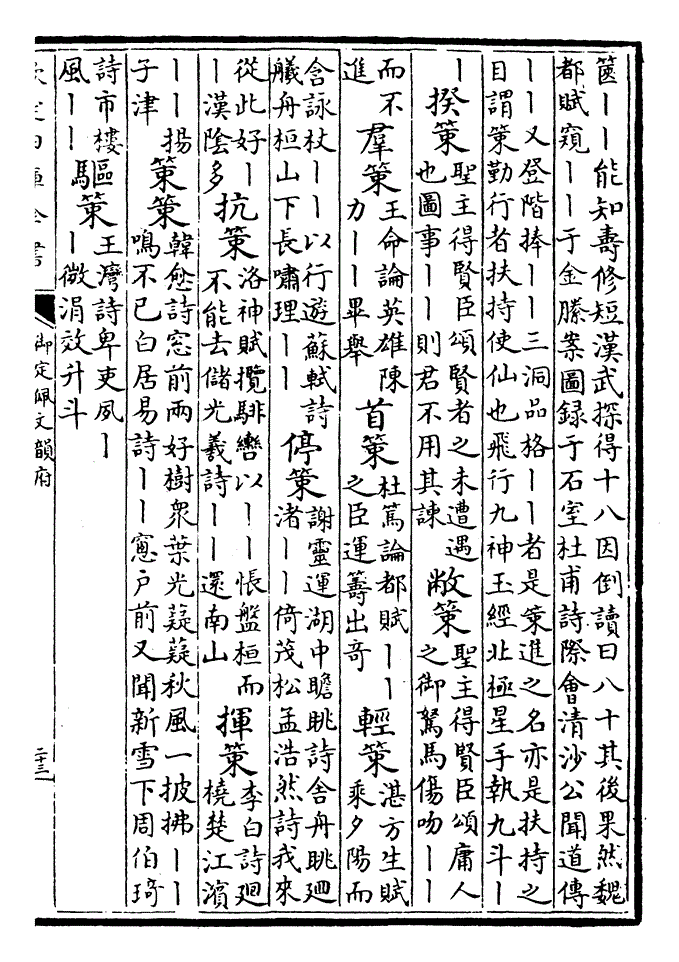 篋｜｜能知壽修短漢武探得十八因倒讀曰八十其後果然魏
都賦窺｜｜于金縢案圖録于石室杜甫詩際會清沙公聞道傳
｜｜又登階捧｜｜三洞品格｜｜者是策進之名亦是扶持之
目謂策勤行者扶持使仙也飛行九神玉經北極星手執九斗｜
｜
揆策
聖主得賢臣頌賢者之未遭遇
也圖事｜｜則君不用其諫
敝策
聖主得賢臣頌庸人
之御駑馬傷吻｜｜
而不
進
羣策
王命論英雄陳
力｜｜畢舉
首策
杜篤論都賦｜｜
之臣運籌出奇
輕策
湛方生賦
乘夕陽而
含詠杖｜｜以行遊蘇軾詩
艤舟桓山下長嘯理｜｜
停策
謝靈運湖中瞻眺詩舍舟眺迴
渚｜｜倚茂松孟浩然詩我來
從此好｜
｜漢陰多
抗策
洛神賦攬騑轡以｜｜悵盤桓而
不能去儲光羲詩｜｜還南山
揮策
李白詩廻
橈楚江濱
｜｜揚
子津
策策
韓愈詩窓前兩好樹衆葉光薿薿秋風一披拂｜｜
鳴不已白居易詩｜｜窻戶前又聞新雪下周伯琦
詩市樓
風｜｜
驅策
王灣詩卑吏夙｜
｜微涓效升斗
欽定四庫全書
御定佩文韻府
二十三